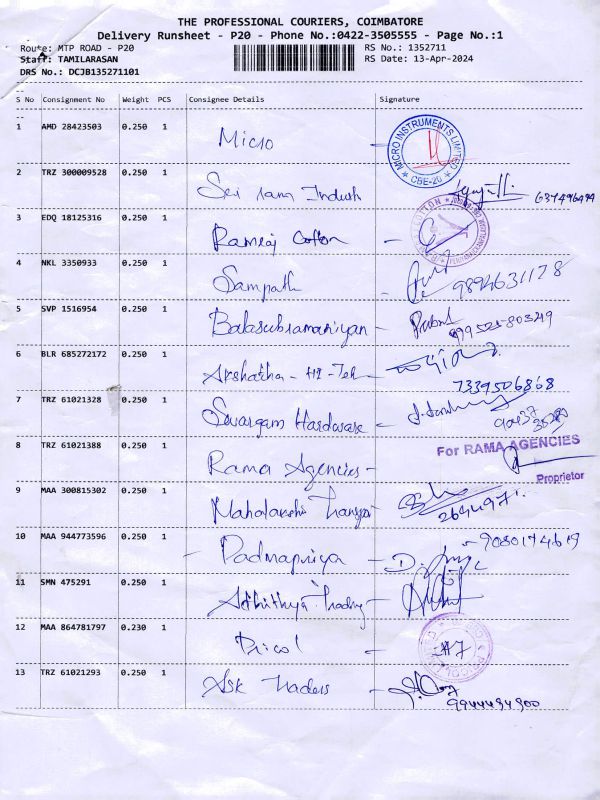 THE PROFESSIONAL COURIERS, COIMBATORE
Delivery Runsheet - P20 - Phone No.:0422-3505555 - Page No.:1
Route: MTP ROAD - P20 RS No.: 1352711
Staff: TAMILARASAN RS Date: 13-Apr-2024
DRS No.: DCJB135271101
S No Consignment No Weight PCS Consignee Details Signature
1 AMD 28423503 0.250 1 Micro MICRO INSTRUMENTS LIMITED CBE-20
2 TRZ 300009528 0.250 1 Sri ram
3 EDQ 18125316 0.250 1 Ramraj Cotton -
4 NKL 3350933 0.250 1 Sampath - 9894631178
5 SVP 1516954 0.250 1 Balasubramaniyan -
6 BLR 685272172 0.250 1 Akshatha - HI-Teh 7339506868
7 TRZ 61021328 0.250 1 Swargam Hardware -
8 TRZ 61021388 0.250 1 Rama Agencies - For RAMA AGENCIES
Proprietor
9 MAA 300815302 0.250 1 Mahalakshmi 2644971
10 MAA 944773596 0.250 1 - Padmapriya - 9080174619
11 SMN 475291 0.250 1 Adhithya Trading -
12 MAA 864781797 0.230 1 Pricol -
13 TRZ 61021293 0.250 1 Ask Traders - 9944494900